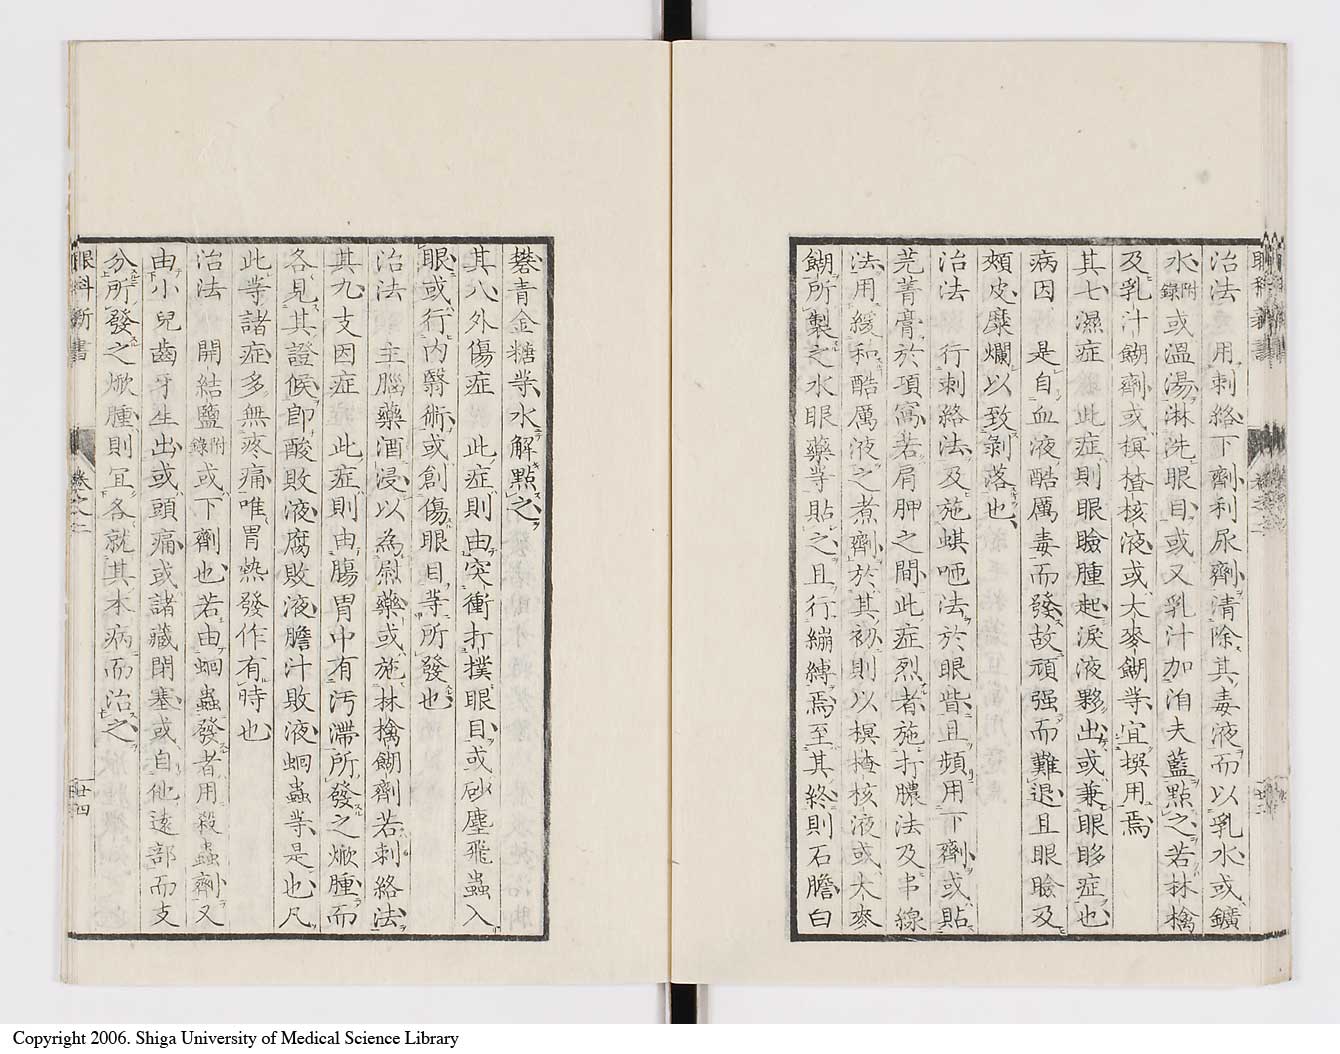 眼科新書
治法用刺絡下劑利尿劑淸除其毒液而以乳水或鑛
水附錄或溫湯淋洗眼目或又乳汁加洎夫藍點之若林檎
及乳汁餬劑或榠樝核液或大麥餬等宜撰用焉
其七濕症此症則眼瞼腫起淚液夥出或兼眼眵症也
病因是自血液酷厲毒而發故頑强而難退且眼瞼及
頰皮糜爛以致剝落也
治法行刺絡法及施蜞咂法於眼眥且頻用下劑或貼
芫菁膏於項窩若肩胛之間此症烈者施打膿法及串線
法用緩和酷厲液之煮劑於其初則以榠樝核液或大麥
餬所製之水眼藥等貼之且行繃縛焉至其終則石膽白
礬靑金糖等水解點之
其八外傷症此症則由突衝打撲眼目或砂塵飛蟲入
眼或行內翳術或創傷眼目等所發也
治法主腦藥酒浸以為慰藥或施林檎餬劑若刺絡法
其九支因症此症則由腸胃中有汚滯所發之焮腫而
各見其證候卽酸敗液腐敗液膽汁敗液蛔蟲等是也凡
此等諸症多無疼痛唯胃熱發作有時也
治法開結鹽附錄或下劑也若由蛔蟲發者用殺蟲劑又
由小兒齒牙生出或頭痛或諸藏閉塞或自他遠部而支
分所發之焮腫則宜各就其本病而治之
眼科新書 卷之二 廿四
Copyright 2006. Shiga University of Medical Science Library